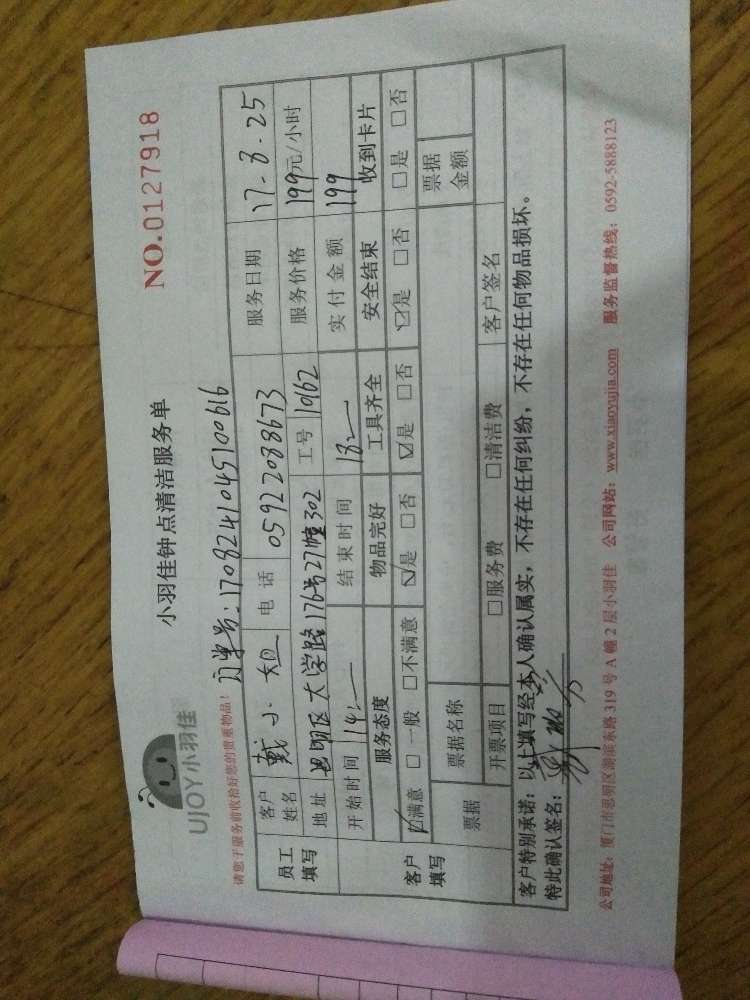 UJOY小羽佳
小羽佳钟点清洁服务单
NO.0127918
请您于服务前收拾好您的贵重物品!
订单号:170824104510061 6
员工填写 客户姓名 戴小姐 电话 05922088673 服务日期 17-8-25
地址 思明区大学路176号27幢302 工号 1062 服务价格 199元/小时
开始时间 14:— 结束时间 18:— 实付金额 199
客户填写 服务态度 物品完好 工具齐全 安全结束 收到卡片
☑满意 □一般 □不满意 ☑是 □否 ☑是 □否 ☑是 □否 □是 □否
票据 票据名称 票据金额
开票项目 □服务费 □清洁费 客户签名
客户特别承诺:以上填写经本人确认属实,不存在任何纠纷,不存在任何物品损坏。
特此确认签名:
公司地址:厦门市思明区湖滨东路319号A幢2层小羽佳 公司网站:www.xiaoyujia.com 服务监督热线:0592-5888123